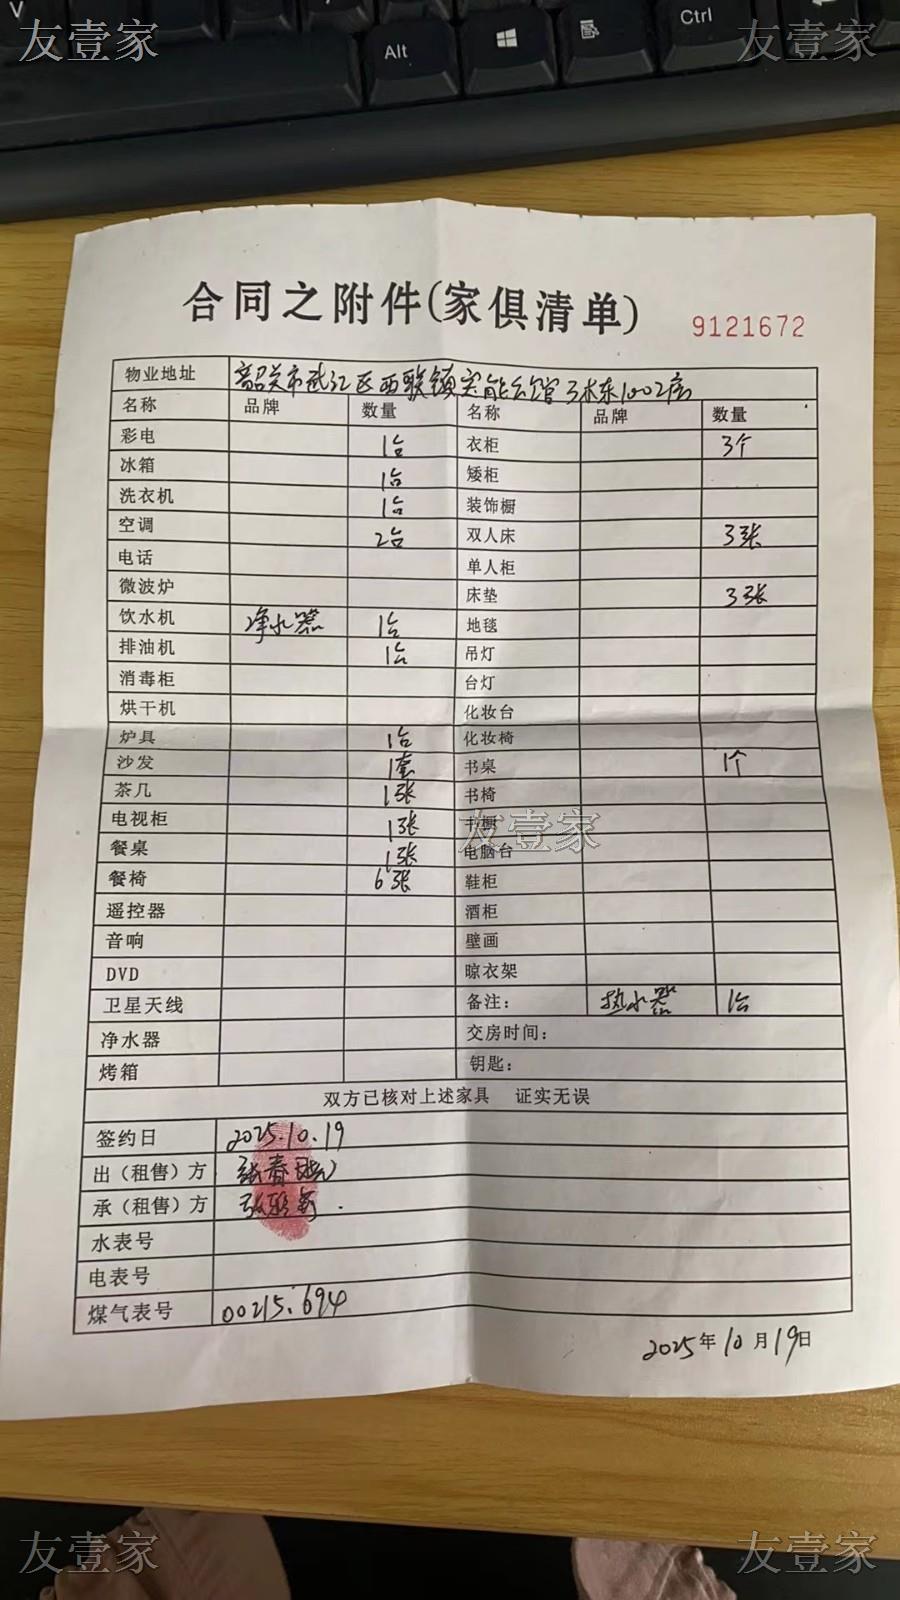 V
Alt
Ctrl
友壹家 友壹家
合同之附件(家俱清单)
9121672
物业地址 韶关市武江区西联镇实能公馆 1002房
名称 品牌 数量 名称 品牌 数量
彩电 1台 衣柜 3个
冰箱 1台 矮柜
洗衣机 1台 装饰橱
空调 2台 双人床 3张
电话 单人柜
微波炉 床垫 3张
饮水机 净水器 1台 地毯
排油机 1台 吊灯
消毒柜 台灯
烘干机 化妆台
炉具 1台 化妆椅
沙发 1套 书桌 1个
茶几 1张 书椅
电视柜 1张 书橱
友壹家
餐桌 1张 电脑台
餐椅 6张 鞋柜
遥控器 酒柜
音响 壁画
DVD 晾衣架
卫星天线 备注: 热水器 1台
净水器 交房时间:
烤箱 钥匙:
双方已核对上述家具 证实无误
签约日 2025.10.19
出（租售）方 张春
承（租售）方 张
水表号
电表号
煤气表号 00215.694
2025年10月19日
友壹家 友壹家